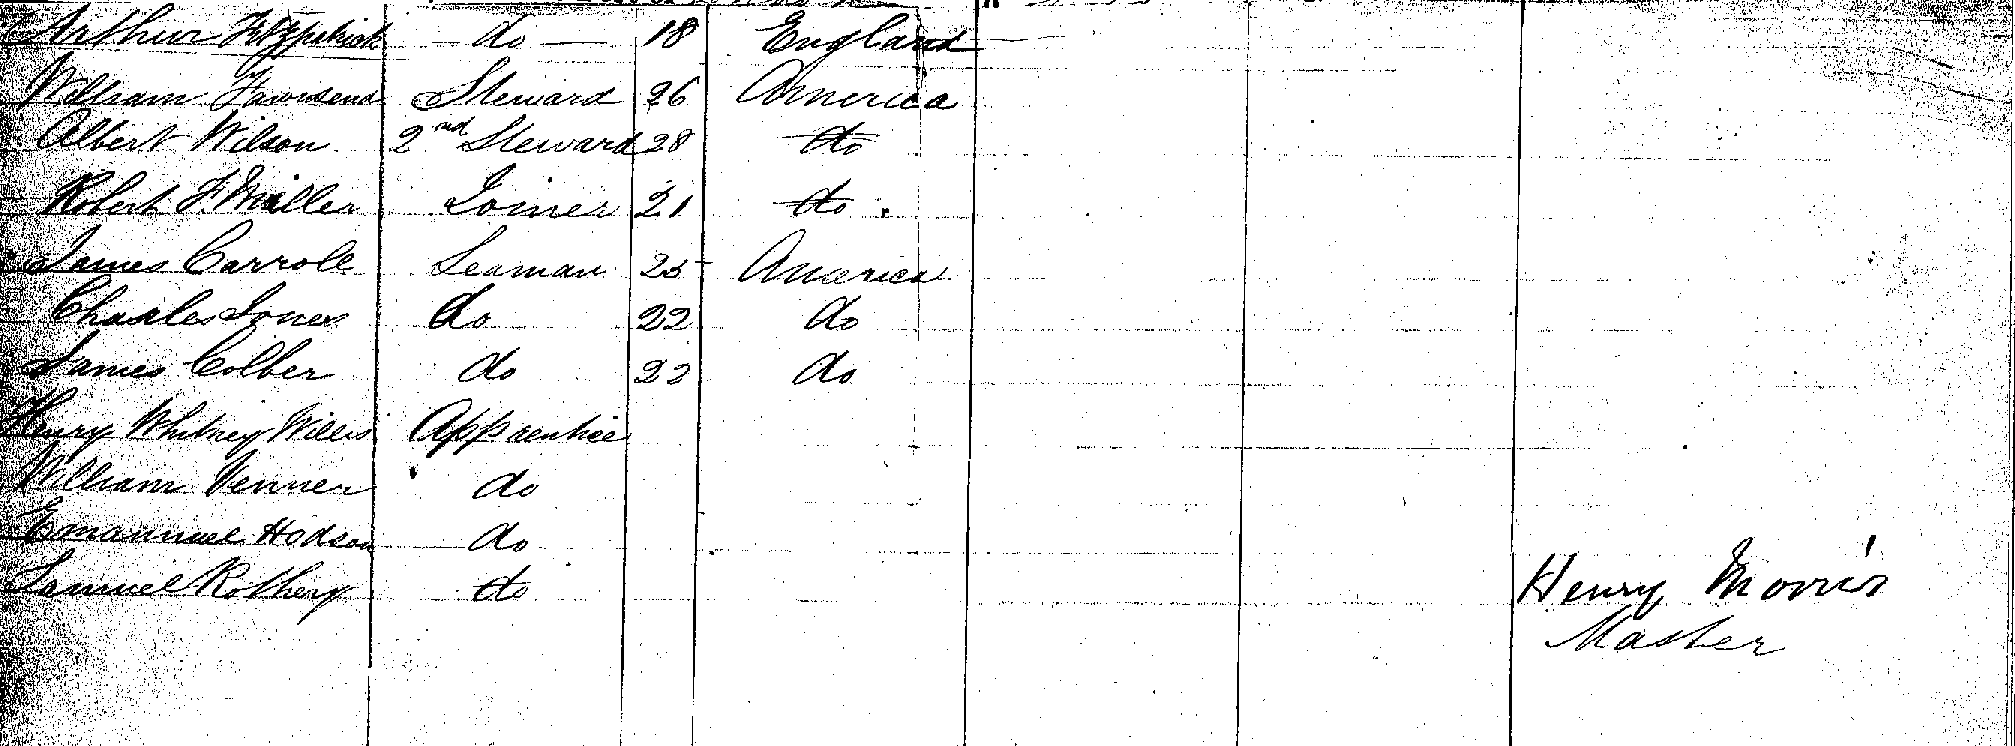 Arthur Fitzpatrick do 18 England
William Townsend Steward 26 America
Albert Wilson 2nd Steward 28 do
Robert F. Miller Joiner 21 do
James Carroll Seaman 25 America
Charles Jones do 22 do
James Colber do 22 do
Henry Whitney Willis Apprentice
William Venner do
Emanuel Hodson do
Samuel Rothery do
Henry Morris
Master